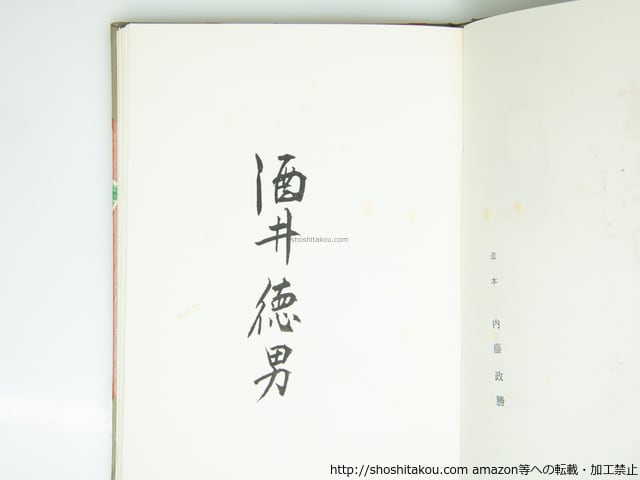 酒井徳男
shoshitakou.com
造本 内藤政勝
http://shoshitakou.com amazon等への転載・加工禁止